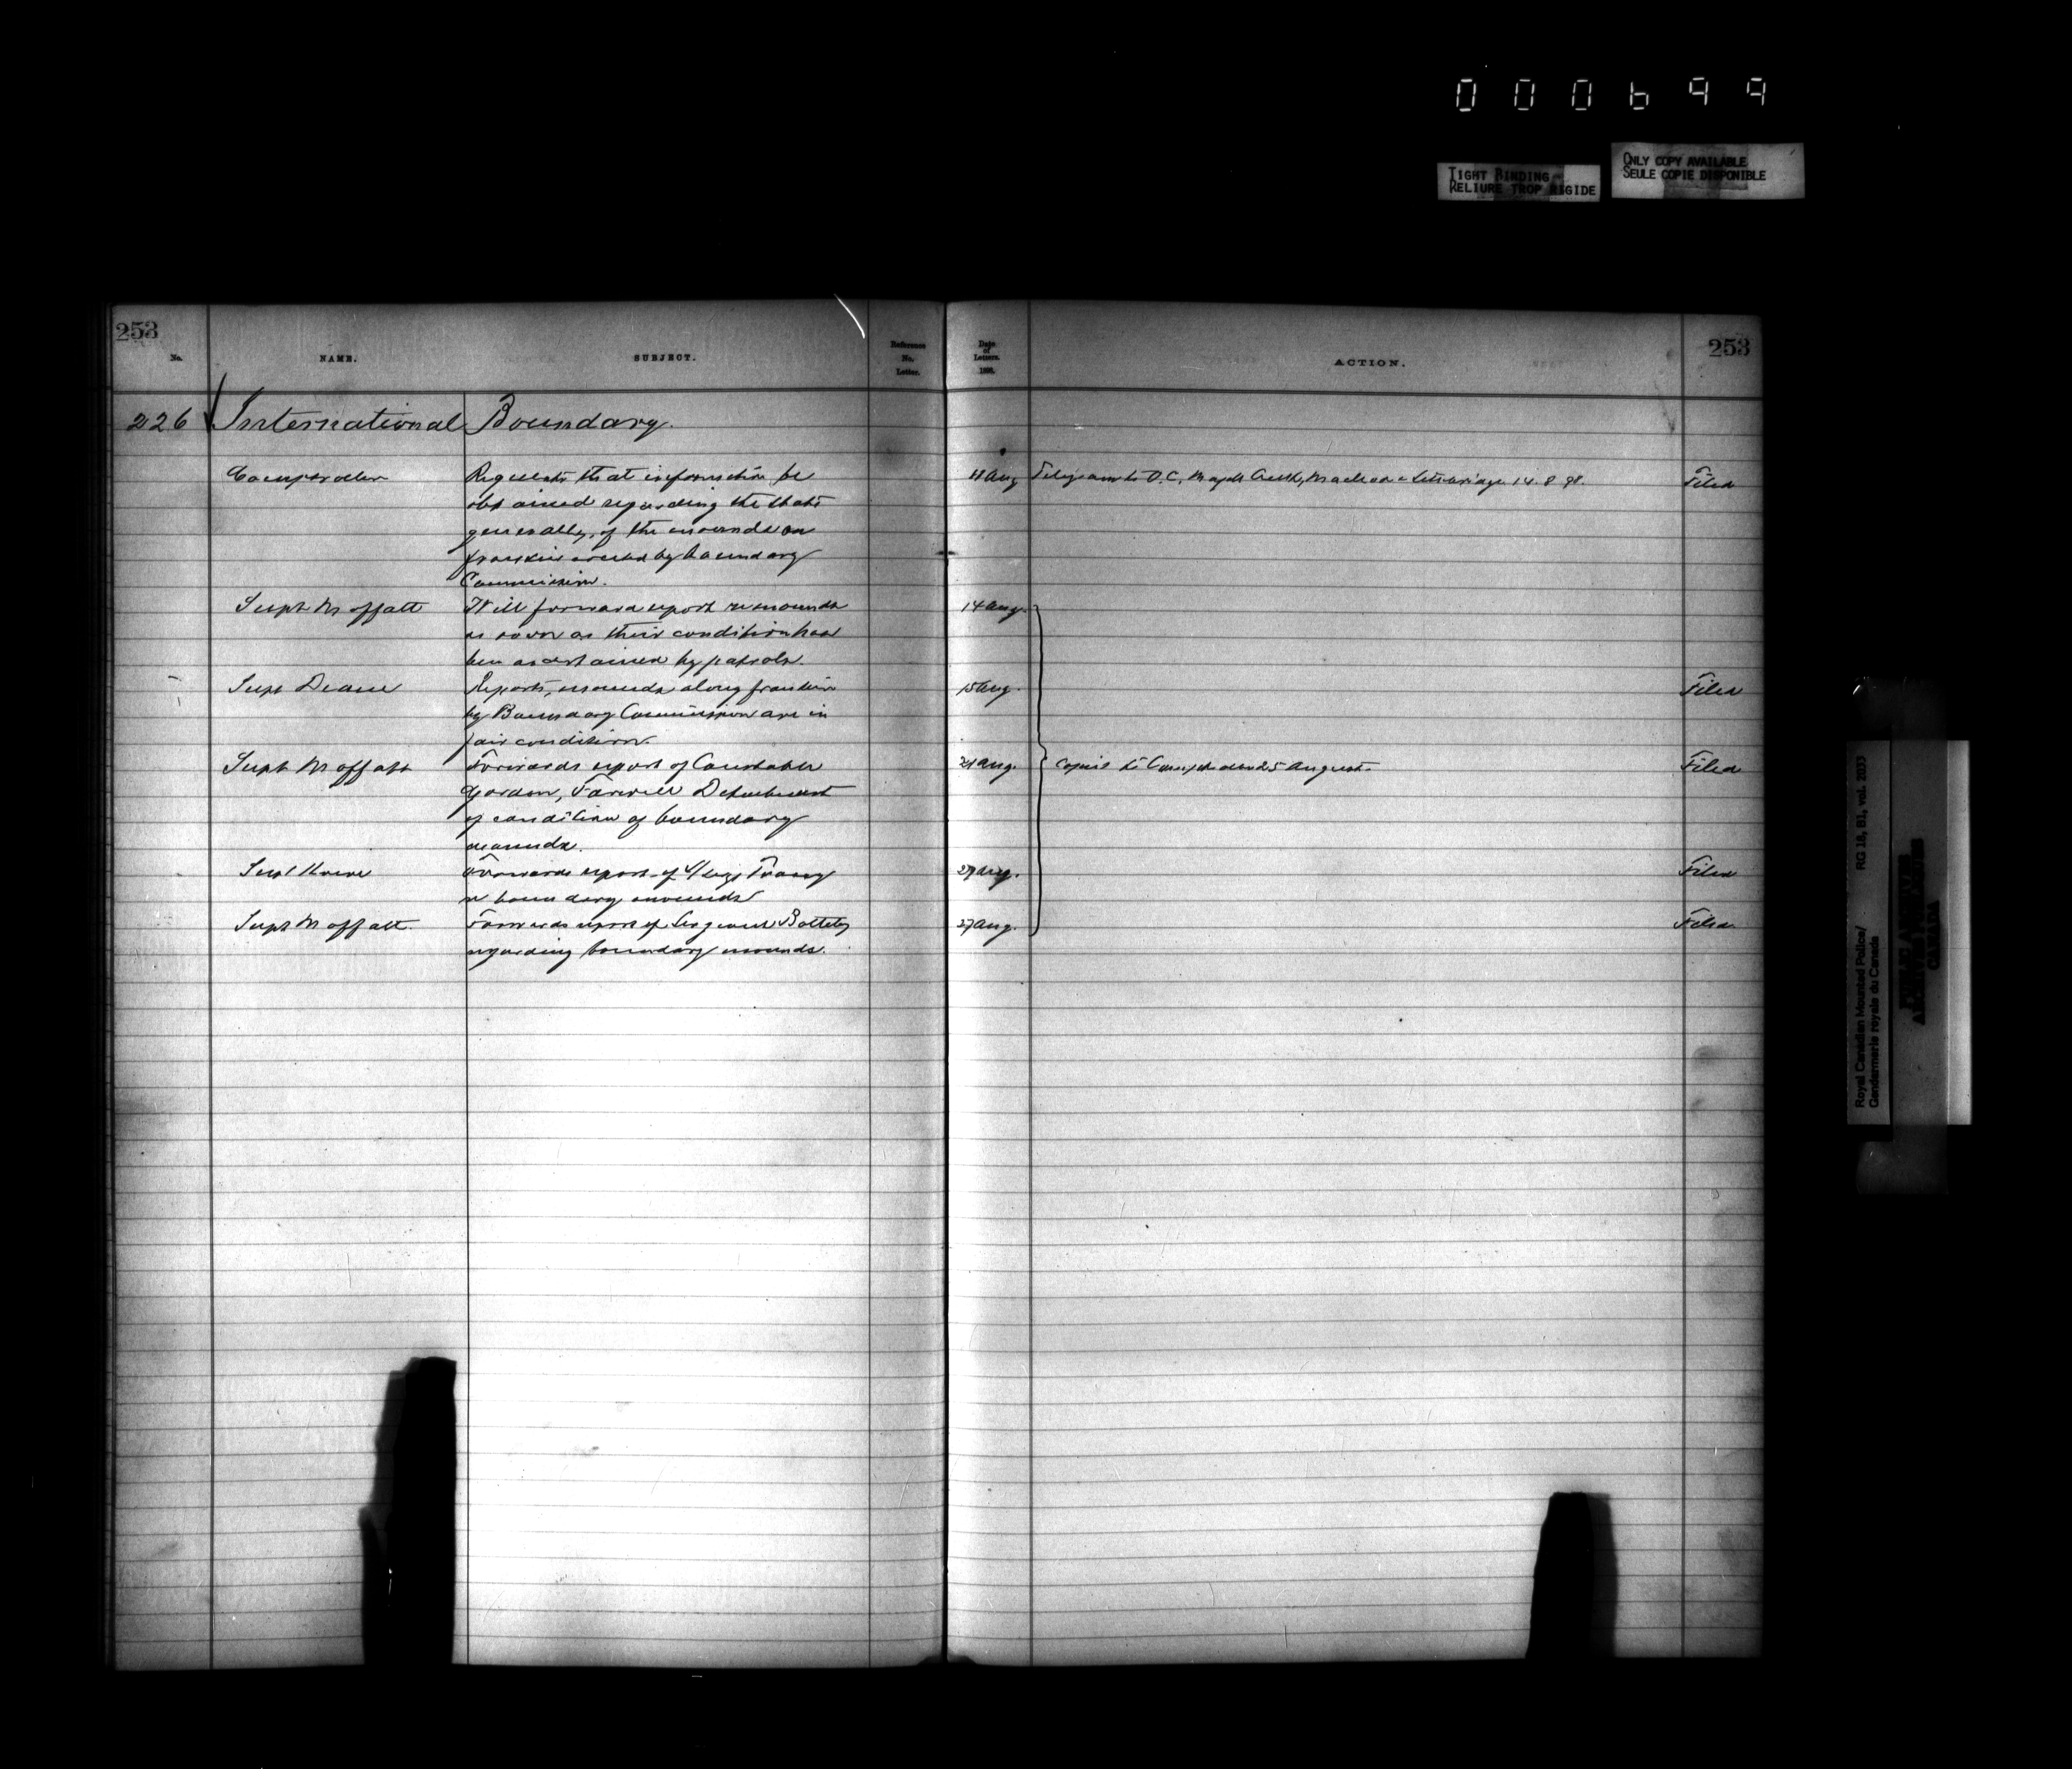 000699
TIGHT BINDING
RELIURE TROP RIGIDE
ONLY COPY AVAILABLE
SEULE COPIE DISPONIBLE
253
253
No.
NAME.
SUBJECT.
Reference
No.
Letter.
Date
of
Letters.
189 .
ACTION.
226 International Boundary.
Comptroller
Requests that information be
obtained regarding the state
generally, of the mounds on
frontier erected by boundary
Commission.
11 Aug
Telegram to O.C, Maple Creek, Macleod & Lethbridge 14. 8 98.
Filed
Supt Moffatt
Will forward report re mounds
as soon as their condition has
been ascertained by patrols.
14 Aug.
Supt Deane
Reports, mounds along frontier
by Boundary Commission are in
fair condition.
15 Aug.
Filed
Supt Moffatt
Forwards report of Constable
Gordon, Farwell Detachment
of condition of boundary
mounds.
21 Aug.
Copies to Comptroller 25 August.
Filed
Supt Howe
Forwards report of S/Sergt
re boundary mounds
Aug.
Filed
Supt Moffatt.
Forwards report of Sergeant
regarding boundary mounds.
27 Aug.
Filed.
Royal Canadian Mounted Police/
Gendarmerie royale du Canada
RG 18, B1, vol. 2033
PUBLIC ARCHIVES
ARCHIVES PUBLIQUES
CANADA